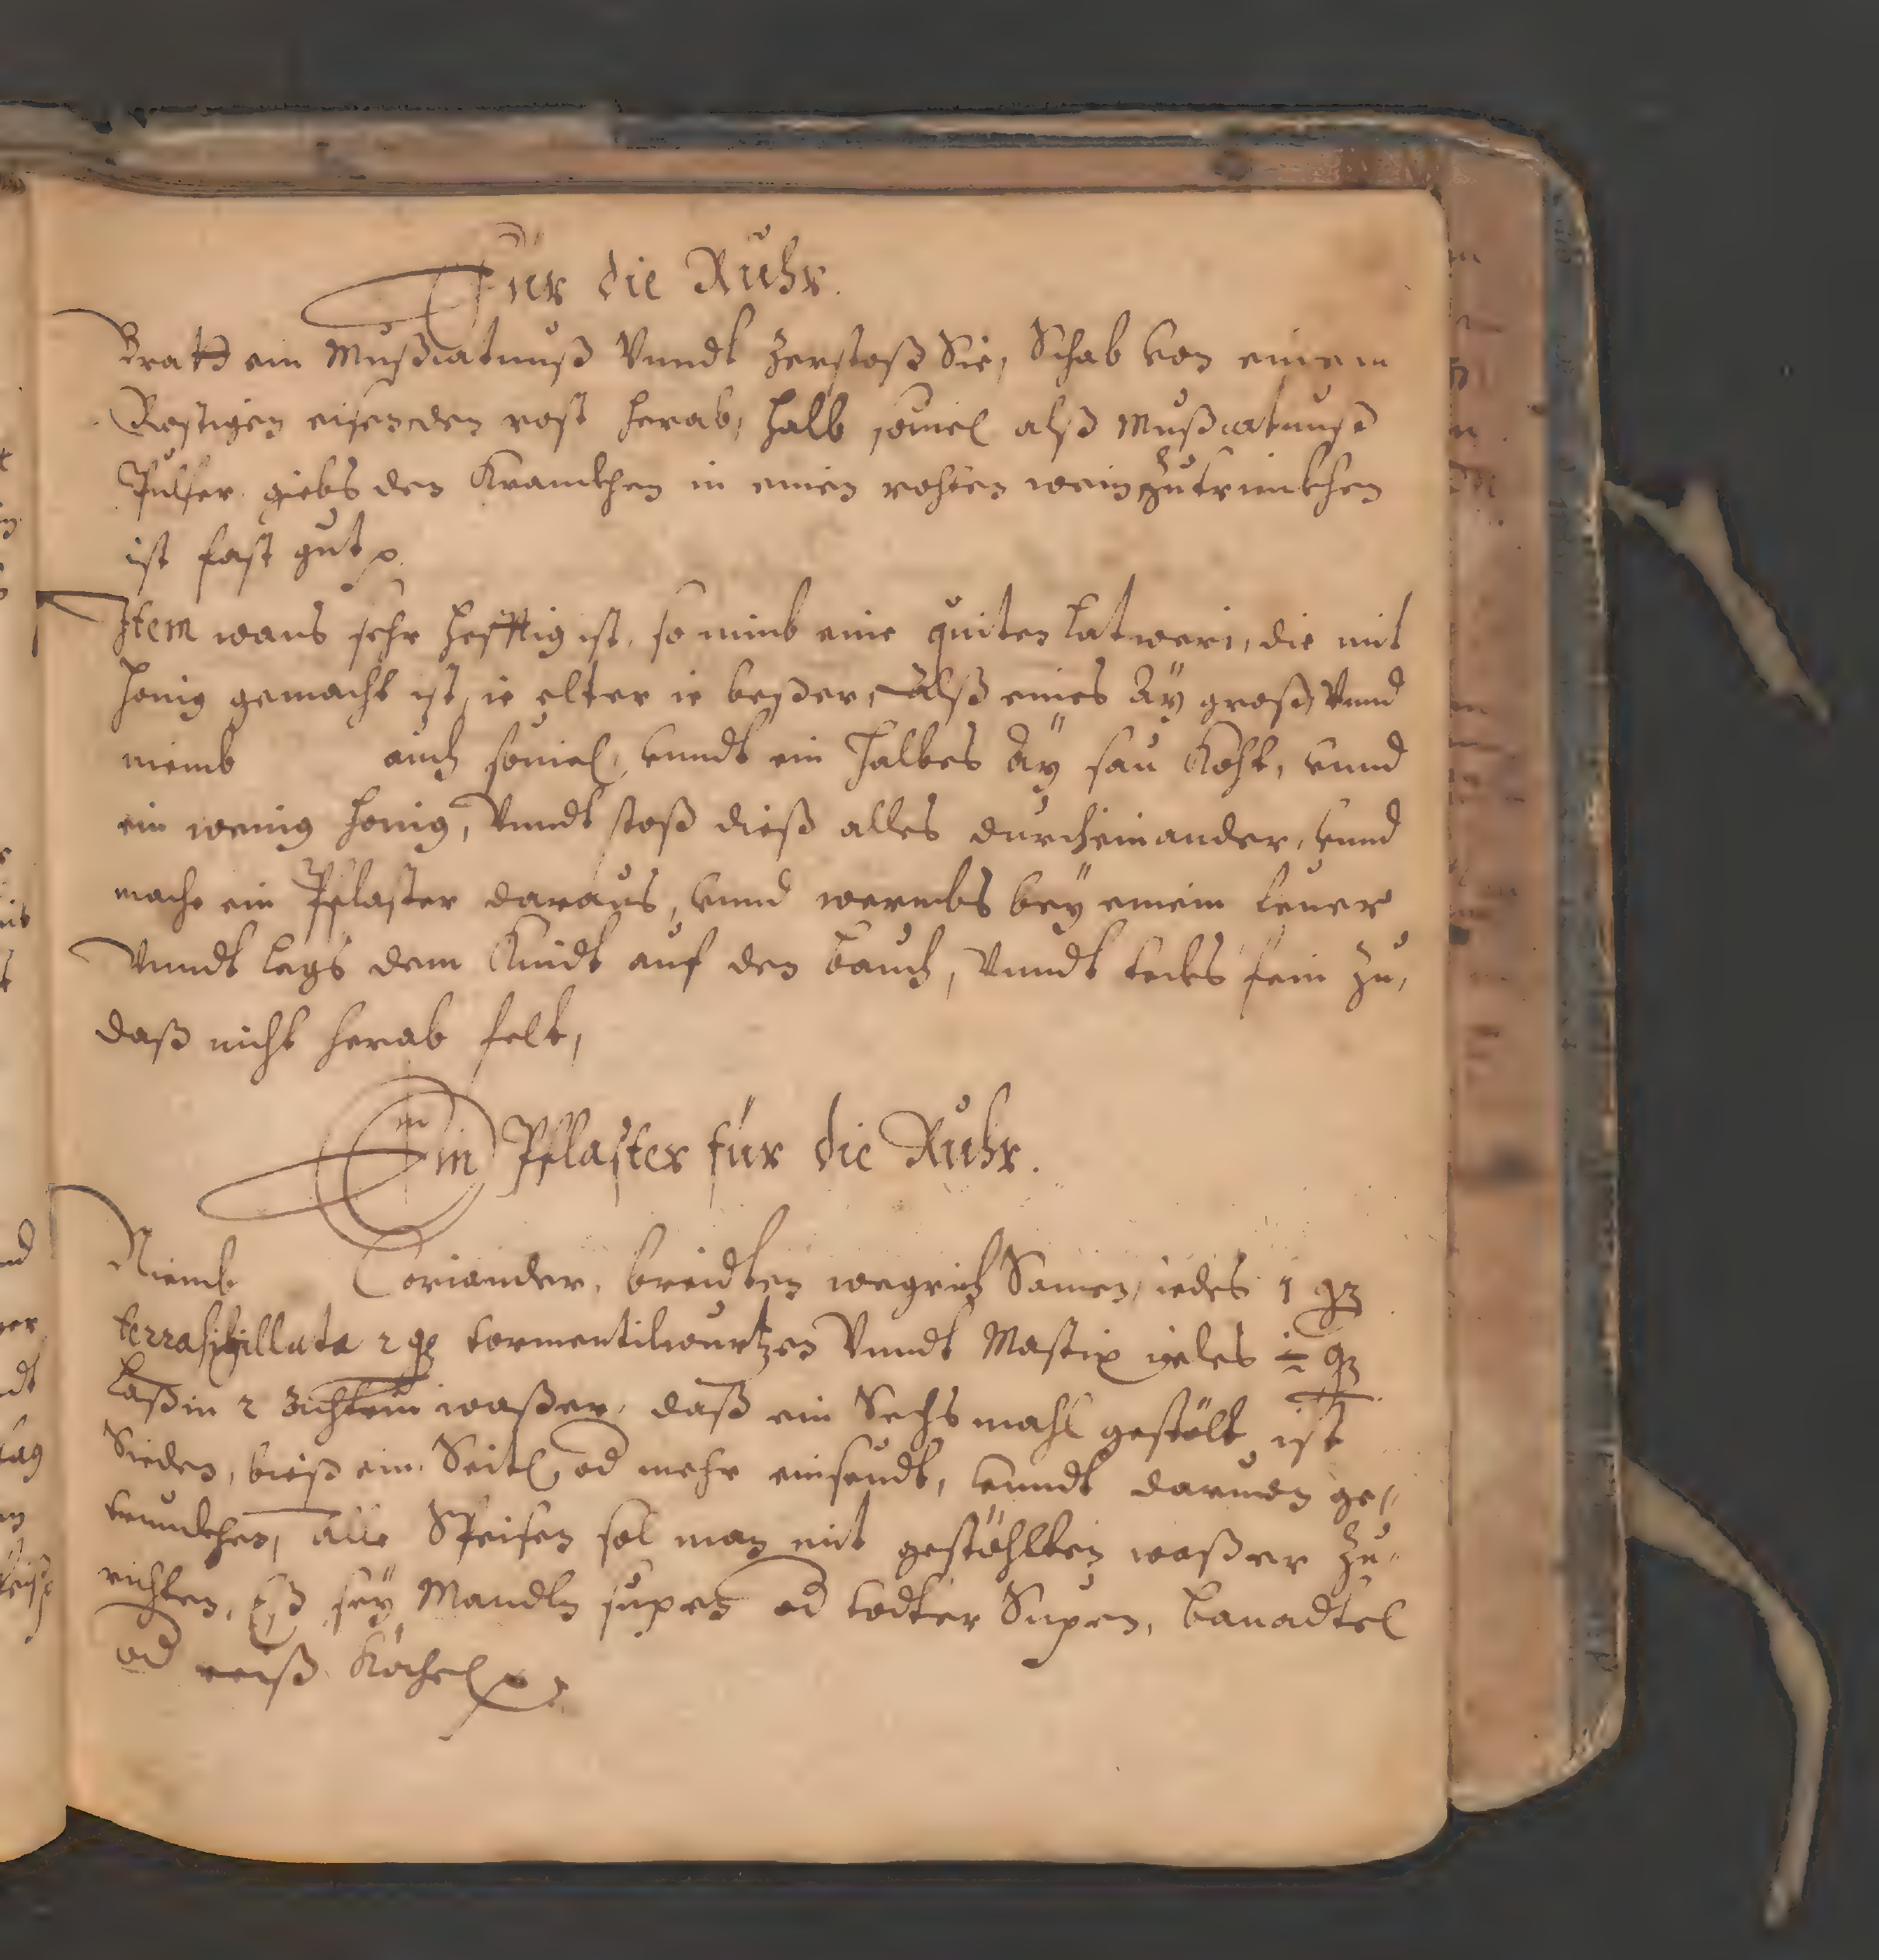 Für die Ruhr.
Brath ein Mußcatnuß Vnndt zerstoß Sie, Schab von einem
Rostigen eisen den rost herab, halb souiel alß Mußcatnuß
Pulfer, giebs den Kranckhen in einen rohten wein zutrinckhen
ist fast gut
Item wans sehr hefftig ist, so nimb eine quiten Latweri, die mit
honig gemacht ist, ie elter ie beßer, Alß eines Aÿ groß, Vnnd
niemb auch souiel, vnndt ein halbes Aÿ sau Koht, vnnd
ein wenig honig, Vnndt stoß dieß alles durcheinander, vnnd
mache ein Pflaster daraus, vnnd wermbs beÿ einem feuer
Vnndt legs dem Kindt auf den bauch, Vnndt decks fein zu,
daß nicht herab felt,
Ein Pflaster für die Ruhr.
Niemb Coriander, breidten wegrich Samen, iedes 1
terra sigillata 2 tormentilwurtzen Vnndt Mastix
Laß in 2 waßer, daß ein Sechs mahl gestölt ist
Sieden, bieß ein Seitl od mehr einseudt, vnndt daruon ge-
trunckhen, alle Speisen sol man mit gestöhlten waßer zu-
richten, Eß seÿ Mandln supen od todter Supen, banadtel
od reiß Köchel